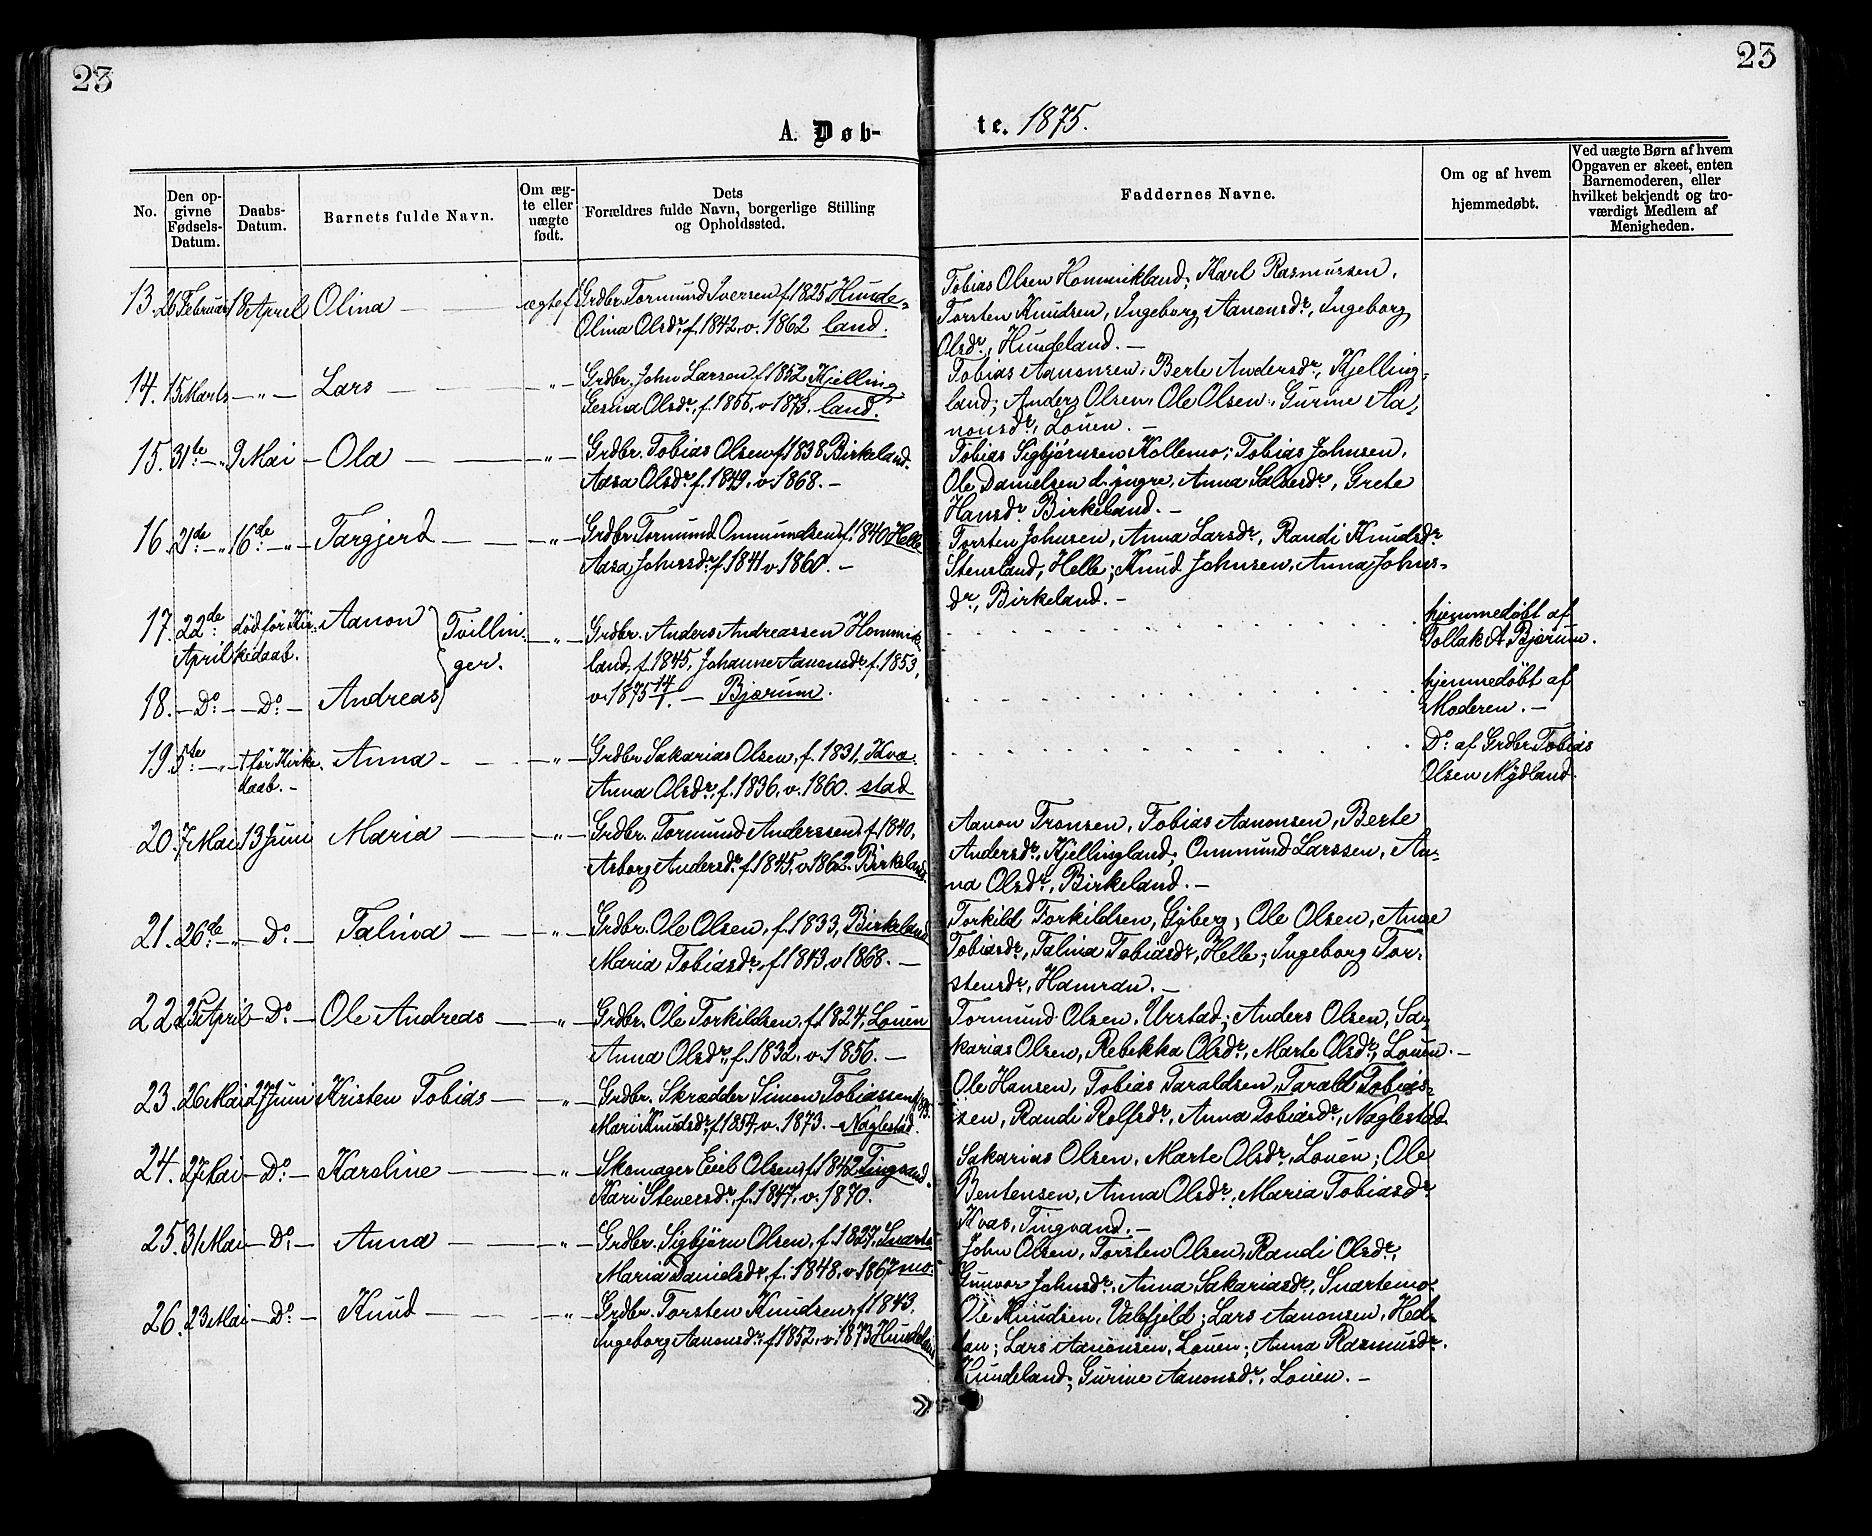 23
23
A. Døb-
te. 1875.
No.
Den op-
givne
Fødsels-
Datum.
Daabs-
Datum.
Barnets fulde Navn.
Om æg-
te eller
uægte
født.
Dets
Forældres fulde Navn, borgerlige Stilling
og Opholdssted.
Faddernes Navne.
Om og af hvem
hjemmedøbt.
Ved uægte Børn af hvem
Opgaven er skeet, enten
Barnemoderen, eller
hvilket bekjendt og tro-
værdigt Medlem af
Menigheden.
13. 26 Februar 18 April Olina — — ægtef. Grdbr. Tormund Iversen f. 1825 Hunde-
Olina Olsdr. f. 1842, v. 1862 land.
Tobias Olsen Hommikland; Karl Rasmussen,
Torsten Knudsen, Ingeborg Aanonsdr., Ingeborg
Olsdr., Hundeland. —
14. 15 Marts — „ — Lars — — „ — Grdbr. John Larsen f. 1852 Kjelling
Gesina Olsdr., f. 1855, v. 1873. land.
Tobias Aanonsen, Berte Andersdr., Kjelling-
land; Anders Olsen, Ole Olsen, Gurine Aa-
nonsdr., Louen. —
15. 31te — „ 9 Mai — Ola — — „ — Grdbr. Tobias Olsen f. 1838 Birkeland.
Aasa Olsdr. f. 1849. v. 1868. —
Tobias Sigbjørnsen Kollemo; Tobias Johnsen,
Ole Danielsen d. yngre, Anna Salvesdr., Grete
Hansdr. Birkeland. —
16. 21de — „ 16de — „ — Targjerd — — „ — Grdbr. Tormund Ommundsen f. 1840 Helle
Aasa Johnsdr. f. 1841 v. 1860. —
Torsten Johnsen, Anna Larsdr., Randi Knudsdr.
Stensland, Helle; Knud Johnsen, Anna Johns-
dr., Birkeland. —
17. 22de død før Kir- Aanon } Tvillin- — „ — Grdbr. Anders Andreassen Hommik-
April kedaab. ger. land, f. 1845, Johanne Aanonsdr. f. 1853,
18. — Do — — Do — Andreas v. 1875 14/ — Bjærum.
hjemmedøbt af
Gollak A. Bjærum.
hjemmedøbt af
Moderen. —
19. 5te — „ — † før Kirke- Anna — — „ — Grdbr. Sakarias Olsen, f. 1831, Kva-
daab. — Anna Olsdr., f. 1836, v. 1860. stad
Do. af Grdbr. Tobias
Olsen Mydland.
20. 7 Mai 13 Juni Maria — — „ — Grdbr. Tormund Anderssen, f. 1840,
Asborg Andersdr. f. 1845, v. 1862. Birkeland
Aanon Tronsen, Tobias Aanonsen, Berte
Andersdr., Kjellingland; Ommund Larssen, An-
na Olsdr., Birkeland. —
21. 26de — „ — Do. — Talina — — „ — Grdbr. Ole Olsen, f. 1833, Birkeland
Maria Tobiasdr., f. 1843, v. 1868. —
Torkild Torkildsen, Gyberg; Ole Olsen, Anne
Tobiasdr., Talina Tobiasdr., Helle; Ingeborg Tor-
stensdr., Hamran. —
22. 25 April — Do. — Ole Andreas — „ — Grdbr. Ole Torkildsen, f. 1824, Louen
Anna Olsdr., f. 1832, v. 1856. —
Tormund Olsen, Urstad; Anders Olsen, Sa-
karias Olsen, Rebekka Olsdr., Marte Olsdr., Louen. —
23. 26 Mai 27 Juni Kristen Tobias — „ — Grdbr. Skrædder Simon Tobiassen
Mari Knudsdr., f. 1854, v. 1873. — Naglestad.
Ole Hansen, Tobias Taraldsen, Tarald Tobias-
sen, Randi Rolfsdr., Anna Tobiasdr., Naglestad
24. 27 Mai — Do. — Karoline — — „ — Skomager Eieb Olsen, f. 1842 Tingvand.
Kari Stenersdr., f. 1847, v. 1870.
Sakarias Olsen, Marte Olsdr., Louen; Ole
Bentensen, Anna Olsdr., Maria Tobiasdr.
Kvas, Tingvand. —
25. 31 Mai — Do. — Anna — — „ — Grdbr. Sigbjørn Olsen, f. 1827, Snarte-
Maria Danielsdr., f. 1848, v. 1867 mo.
John Olsen, Torsten Olsen, Randi Olsdr.,
Gunvor Johnsdr., Anna Sakariasdr., Snartemo.
26. 23 Mai — Do. — Knud — — „ — Grdbr. Torsten Knudsen, f. 1843.
Ingeborg Aanonsdr., f. 1852, v. 1873 Hundeland
Ole Knudsen, Valefjeld; Lars Aanonsen, Hed-
lan; Lars Aanonsen, Louen; Anna Rasmusdr.
Hundeland; Gurine Aanonsdr., Louen. —